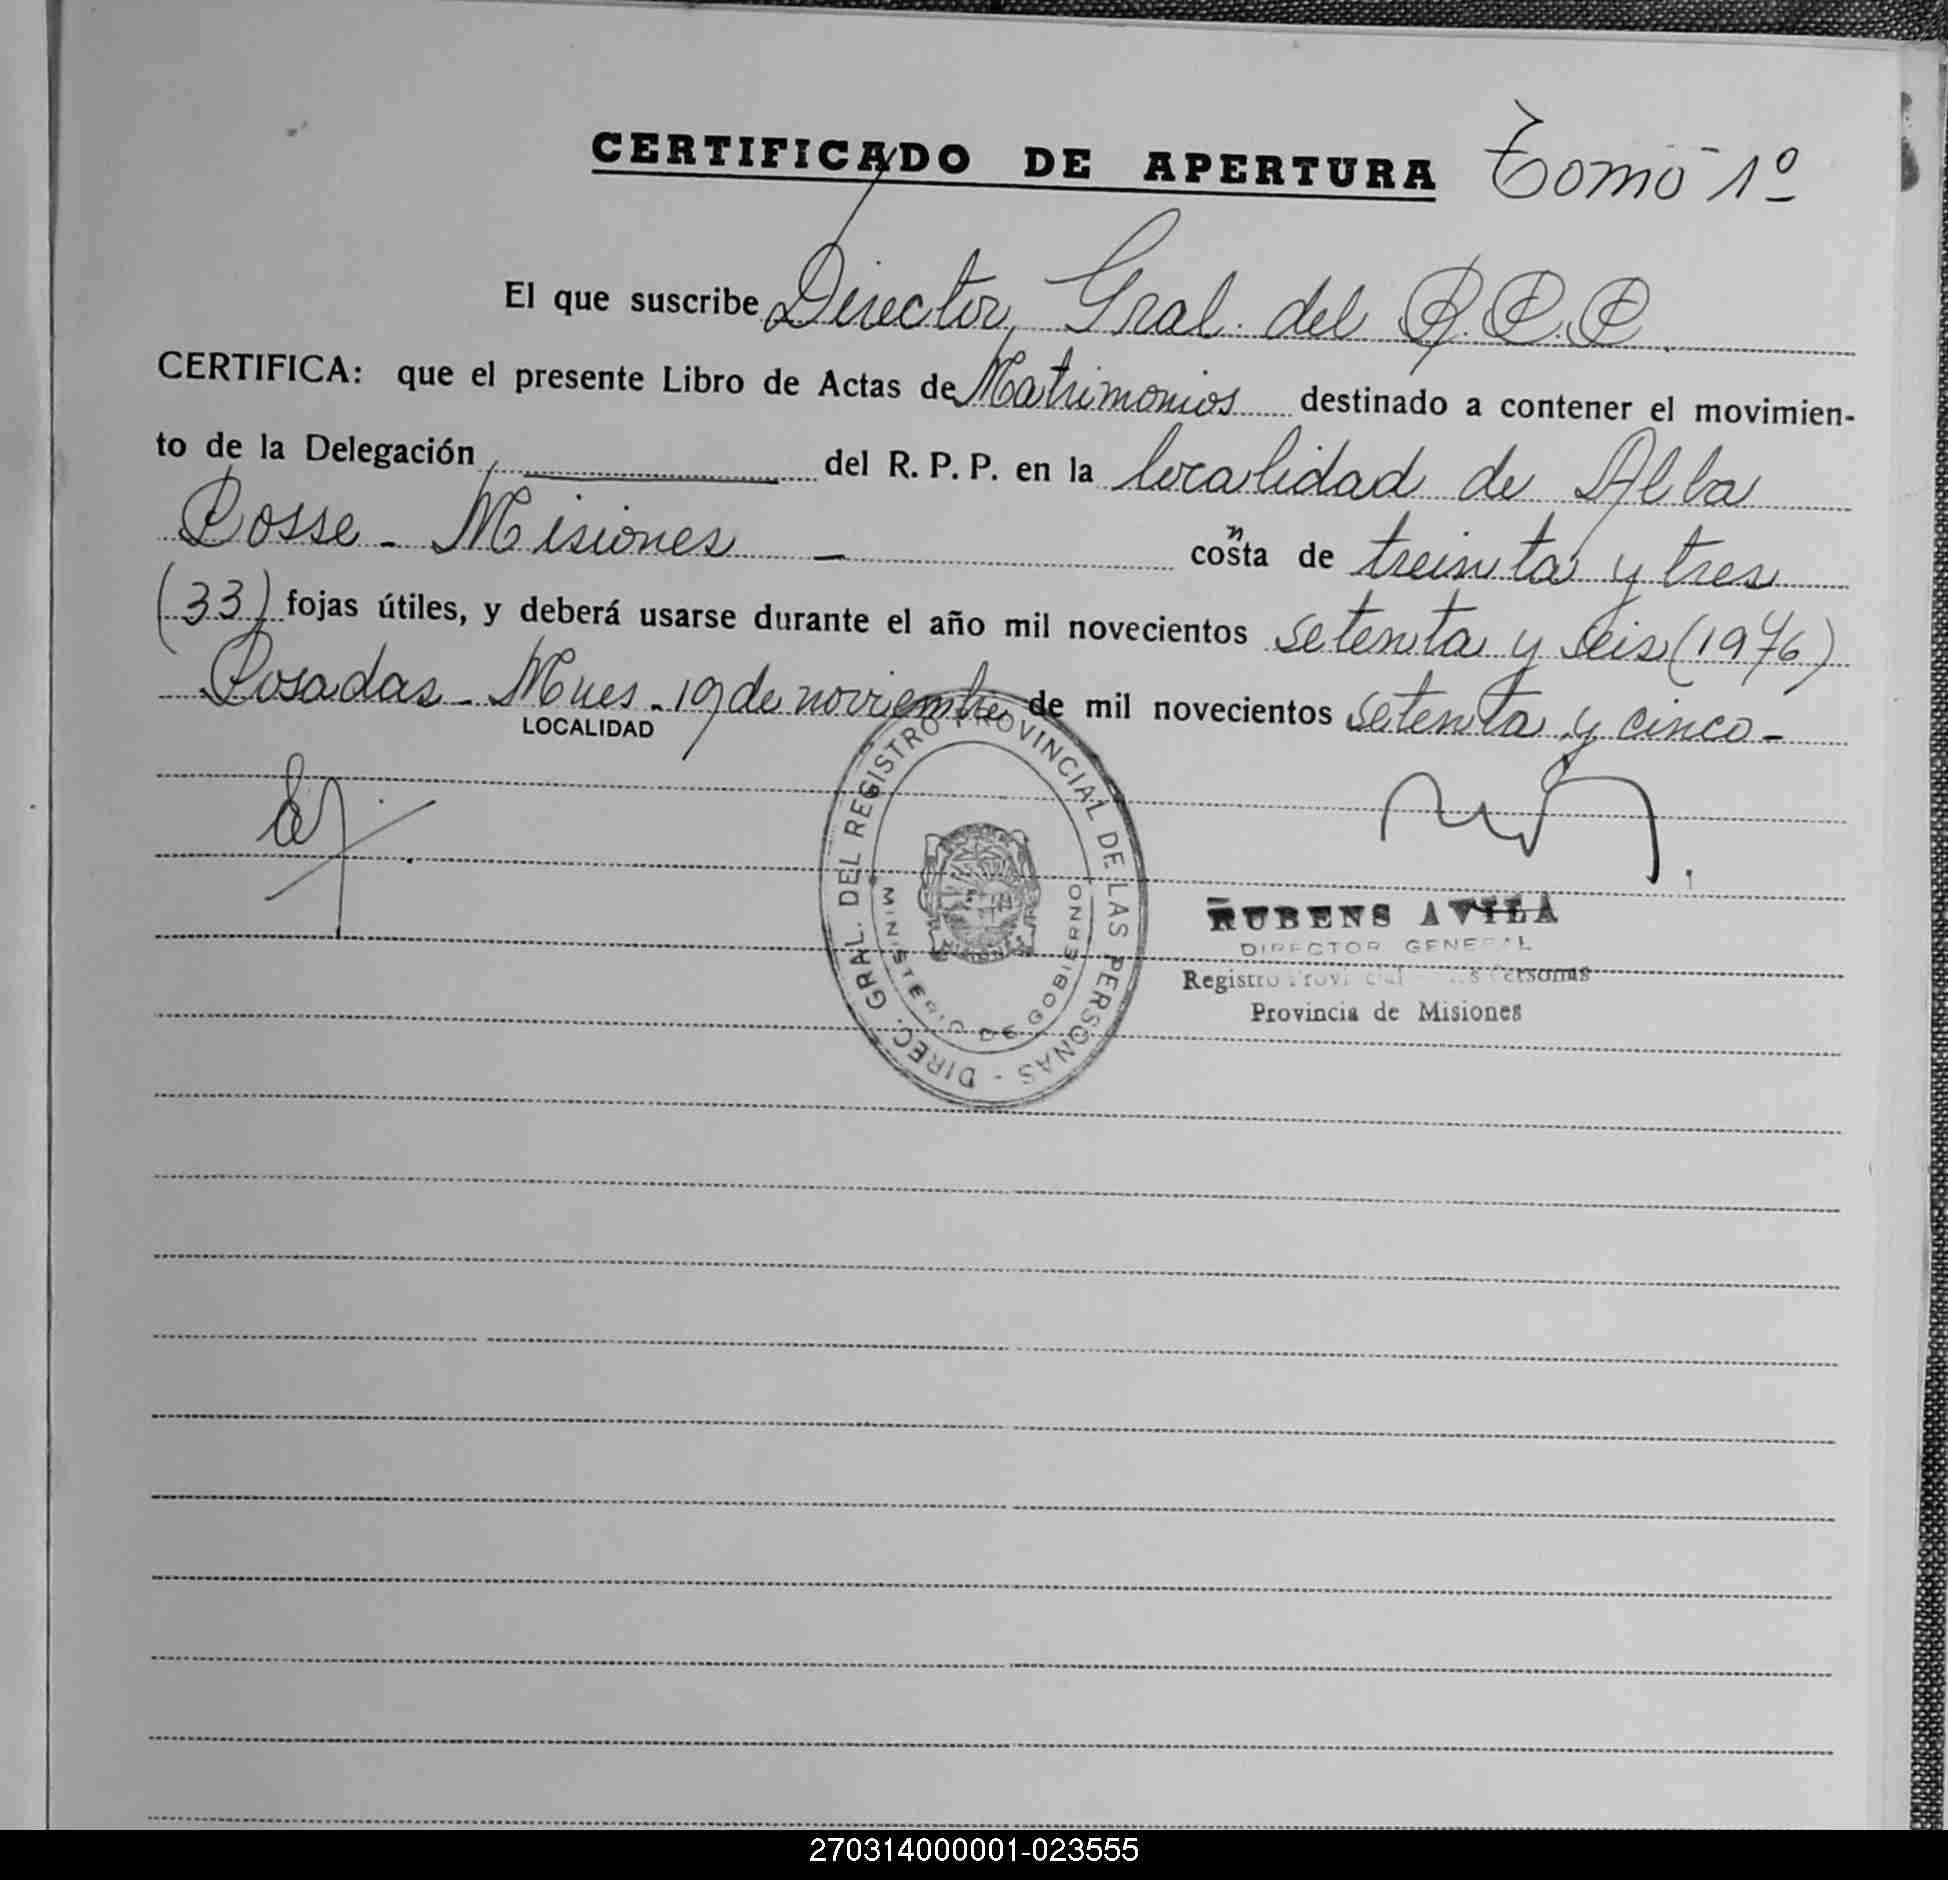 CERTIFICADO DE APERTURA Tomo 1º
El que suscribe Director Gral. del R.P.P.
CERTIFICA: que el presente Libro de Actas de Matrimonios destinado a contener el movimien-
to de la Delegación del R. P. P. en la localidad de Alba
Posse - Misiones - consta de treinta y tres
(33) fojas útiles, y deberá usarse durante el año mil novecientos setenta y seis (1976)
Posadas - Mnes - 19 de noviembre de mil novecientos setenta y cinco -
LOCALIDAD
DIREC. GRAL. DEL REGISTRO PROVINCIAL DE LAS PERSONAS -
MINISTERIO DE GOBIERNO
MISIONES
RUBENS AVILA
DIRECTOR GENERAL
Registro Provincial Personas
Provincia de Misiones
270314000001-023555